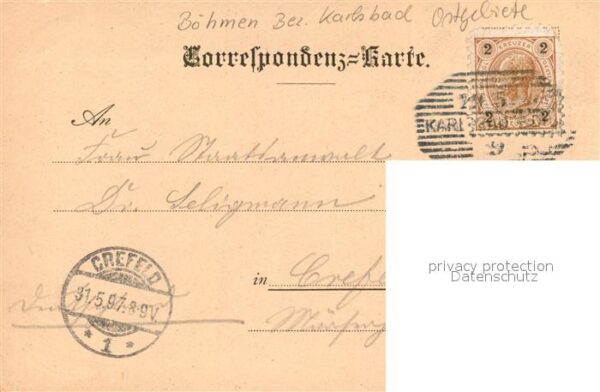 Böhmen Bez. Karlsbad Ostgebiete
Correspondenz-Karte.
2 KREUZER 2
2 2
KARL
9
An
Frau Staatsanwalt
Dr. Seligmann
privacy protection
Datenschutz
in Crefe
CREFELD
31.5.97.8-9V.
* 1 *